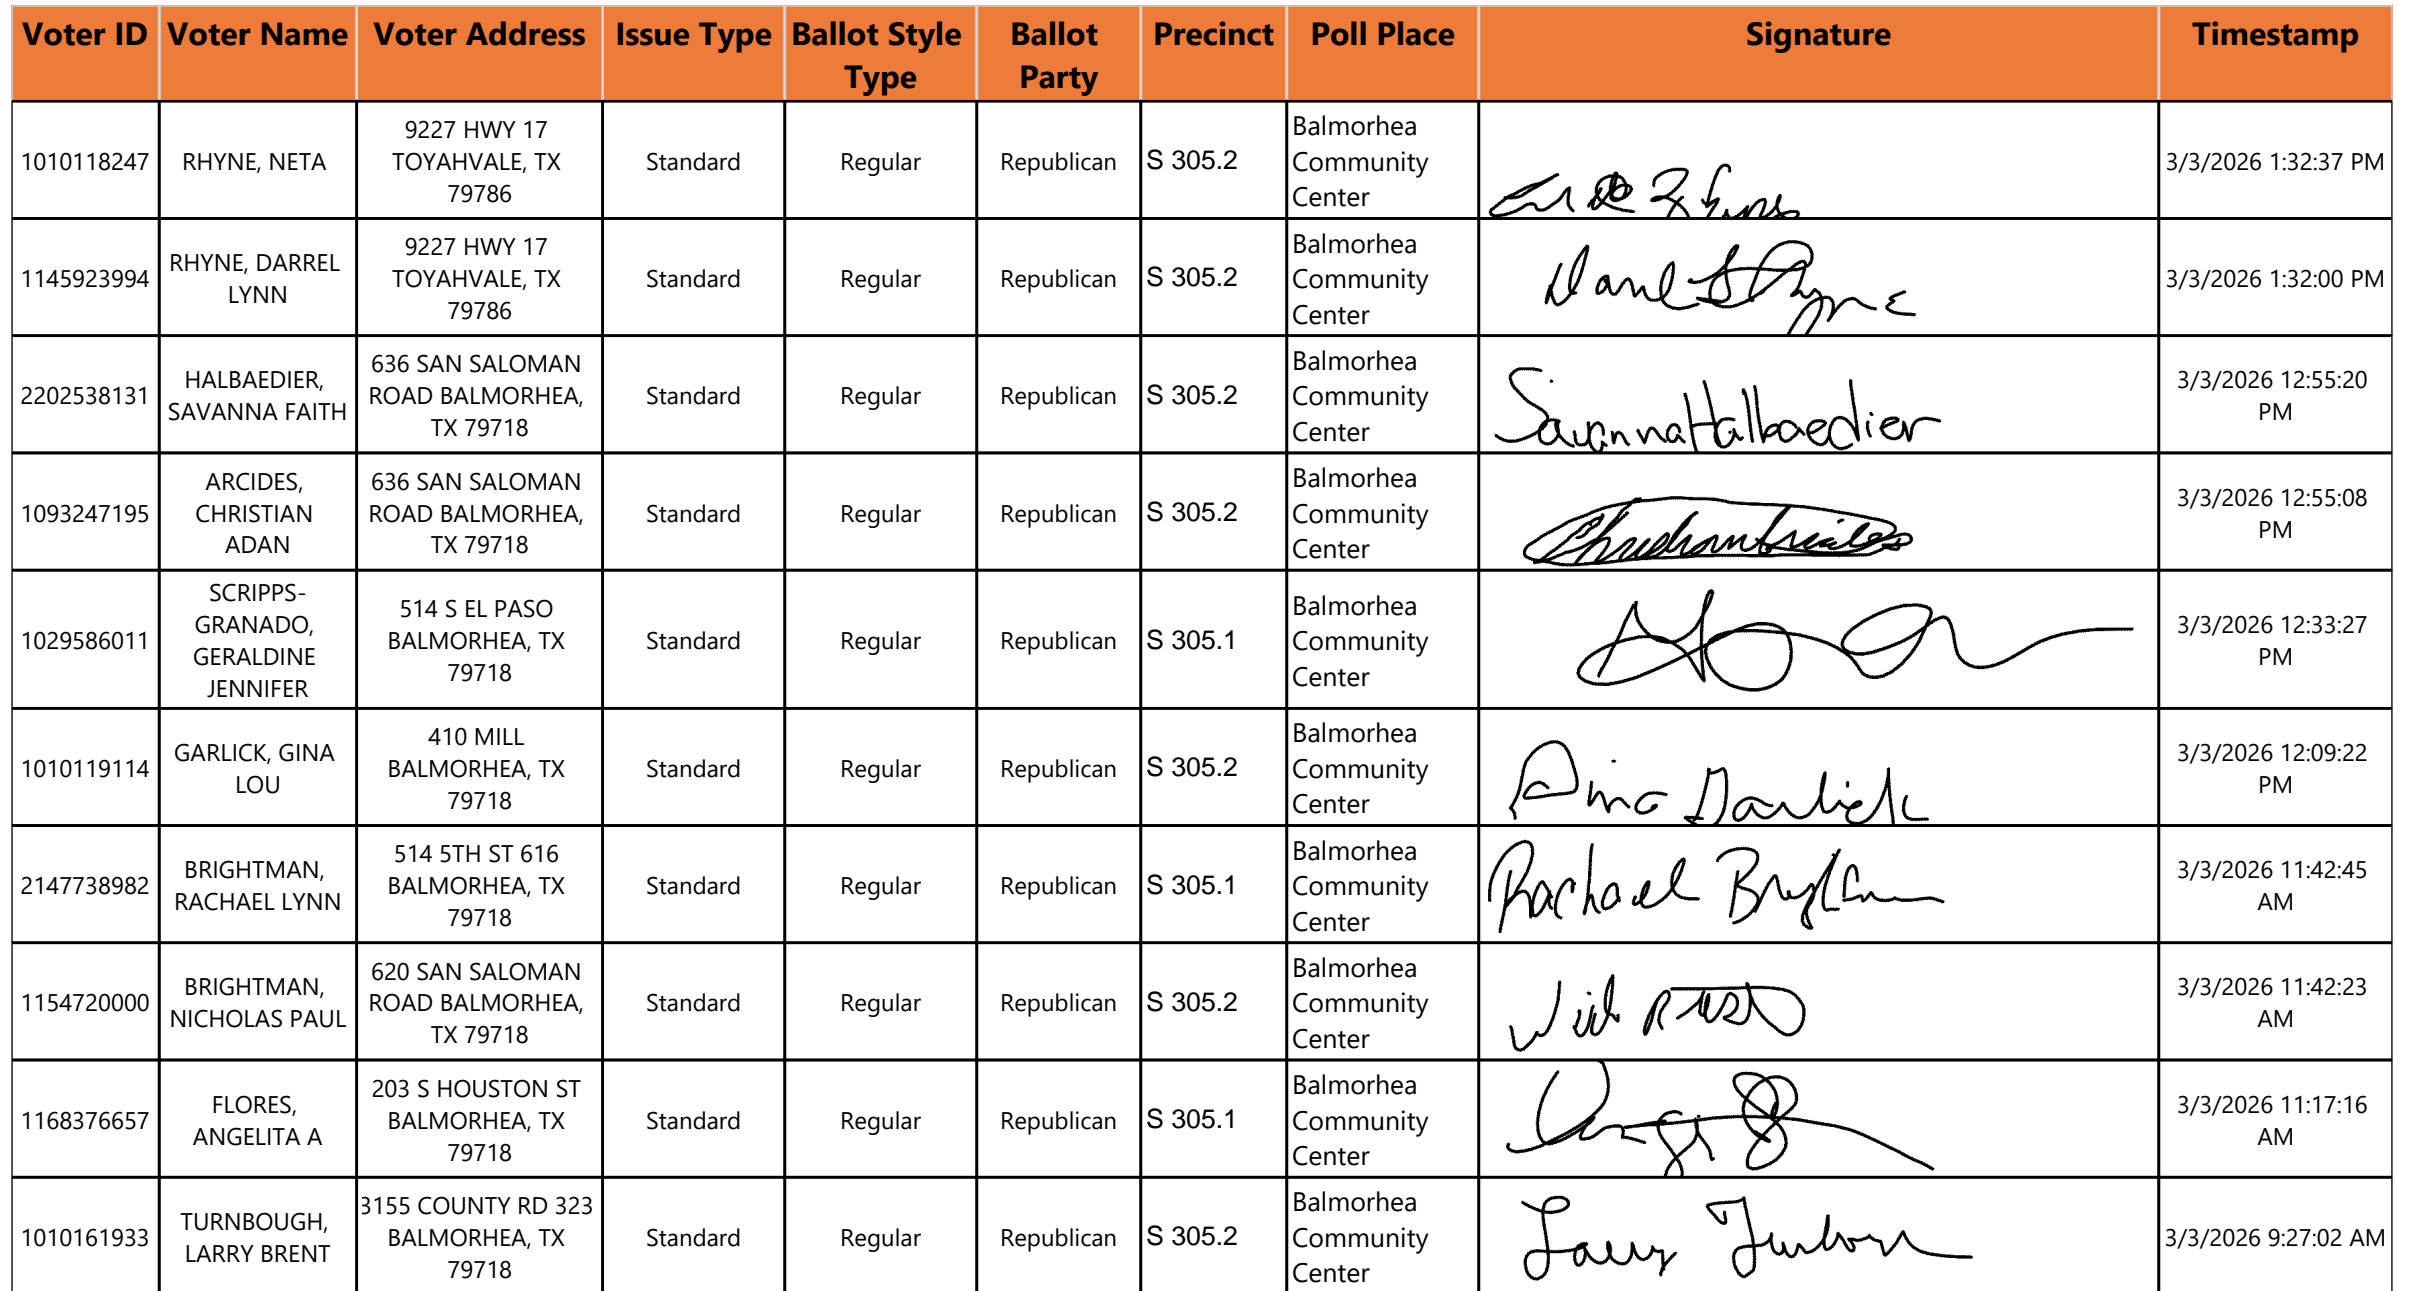 Voter ID Voter Name Voter Address Issue Type Ballot Style Type Ballot Party Precinct Poll Place Signature Timestamp
1010118247 RHYNE, NETA 9227 HWY 17 TOYAHVALE, TX 79786 Standard Regular Republican S 305.2 Balmorhea Community Center 3/3/2026 1:32:37 PM
1145923994 RHYNE, DARREL LYNN 9227 HWY 17 TOYAHVALE, TX 79786 Standard Regular Republican S 305.2 Balmorhea Community Center 3/3/2026 1:32:00 PM
2202538131 HALBAEDIER, SAVANNA FAITH 636 SAN SALOMAN ROAD BALMORHEA, TX 79718 Standard Regular Republican S 305.2 Balmorhea Community Center Savanna Halbaedier 3/3/2026 12:55:20 PM
1093247195 ARCIDES, CHRISTIAN ADAN 636 SAN SALOMAN ROAD BALMORHEA, TX 79718 Standard Regular Republican S 305.2 Balmorhea Community Center 3/3/2026 12:55:08 PM
1029586011 SCRIPPS-GRANADO, GERALDINE JENNIFER 514 S EL PASO BALMORHEA, TX 79718 Standard Regular Republican S 305.1 Balmorhea Community Center 3/3/2026 12:33:27 PM
1010119114 GARLICK, GINA LOU 410 MILL BALMORHEA, TX 79718 Standard Regular Republican S 305.2 Balmorhea Community Center Gina Garlick 3/3/2026 12:09:22 PM
2147738982 BRIGHTMAN, RACHAEL LYNN 514 5TH ST 616 BALMORHEA, TX 79718 Standard Regular Republican S 305.1 Balmorhea Community Center Rachael 3/3/2026 11:42:45 AM
1154720000 BRIGHTMAN, NICHOLAS PAUL 620 SAN SALOMAN ROAD BALMORHEA, TX 79718 Standard Regular Republican S 305.2 Balmorhea Community Center 3/3/2026 11:42:23 AM
1168376657 FLORES, ANGELITA A 203 S HOUSTON ST BALMORHEA, TX 79718 Standard Regular Republican S 305.1 Balmorhea Community Center 3/3/2026 11:17:16 AM
1010161933 TURNBOUGH, LARRY BRENT 3155 COUNTY RD 323 BALMORHEA, TX 79718 Standard Regular Republican S 305.2 Balmorhea Community Center Larry 3/3/2026 9:27:02 AM